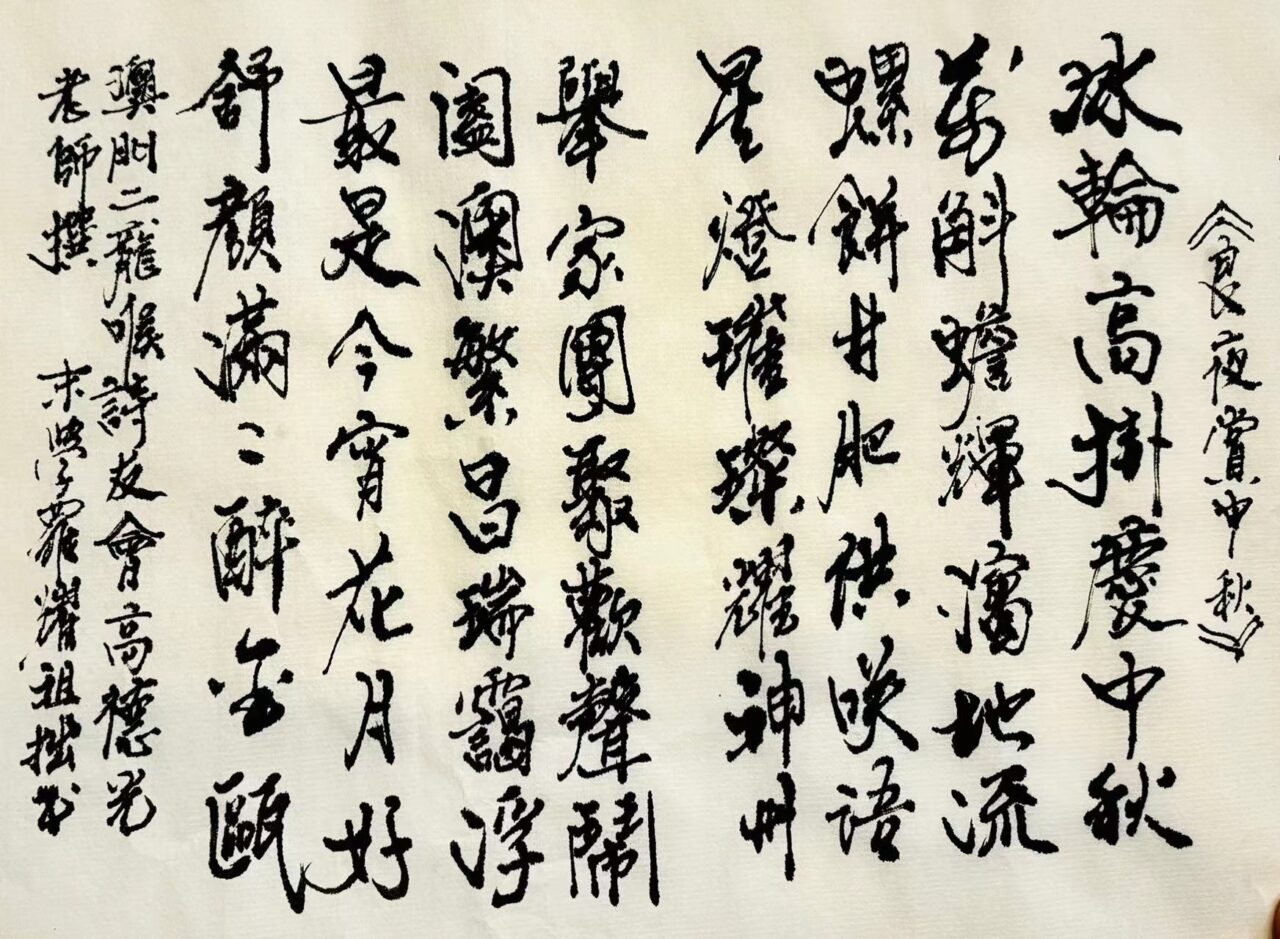 《良夜賞中秋》
冰輪高掛慶中秋
萬斛蟾輝瀉地流
螺餅甘肥供咲語
星燈璀璨耀神州
舉家團聚歡聲鬧
闔澳繁昌瑞靄浮
最是今宵花月好
舒顏滿〻醉金甌
澳門二龍喉詩友會高德光
老師撰 末學羅耀祖拙書